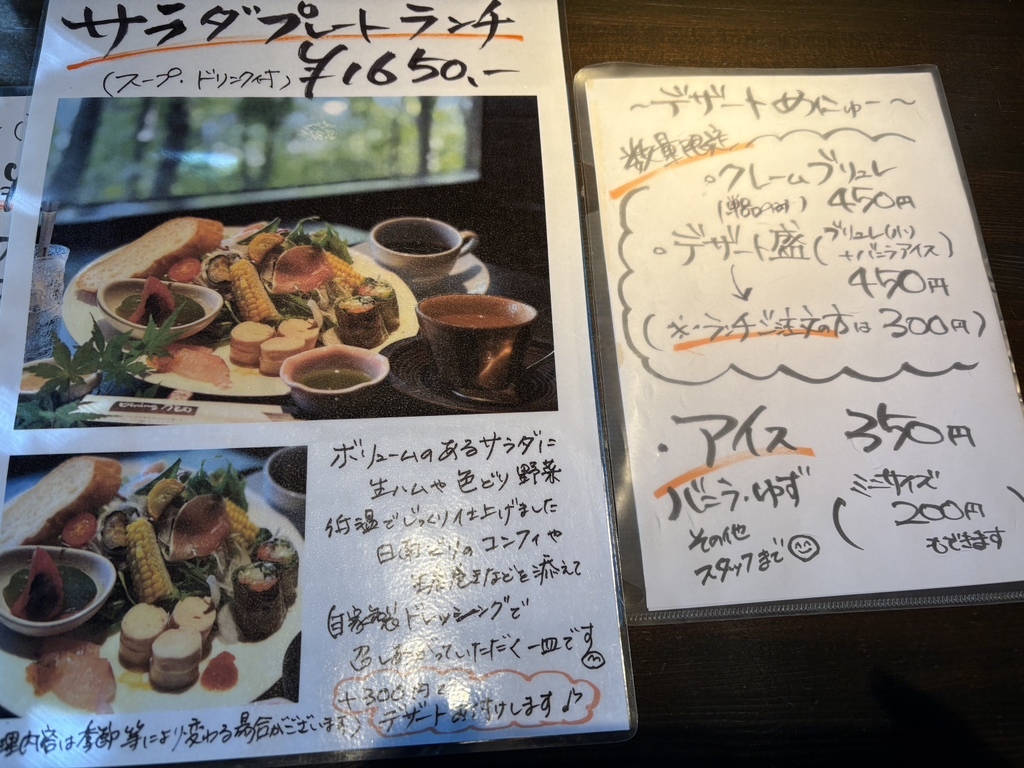 サラダプレートランチ
(スープ・ドリンク付) ¥1650.-
ボリュームのあるサラダに
生ハムや色どり野菜
低温でじっくり仕上げました
日南どりのコンフィや
などを添えて
自家製ドレッシングで
召しあがっていただく一皿です
+300円で
デザートお付けします♪
理内容は季節等により変わる場合がございます)
～デザートめにゅー～
数量限定
・クレームブリュレ
(単品のみ) 450円
・デザート盛(ブリュレ(小)
+バニラアイス)
450円
(※ランチご注文の方は300円)
・アイス 350円
バニラ・ゆず
その他
スタッフまで
(ミニサイズ
200円
もできます